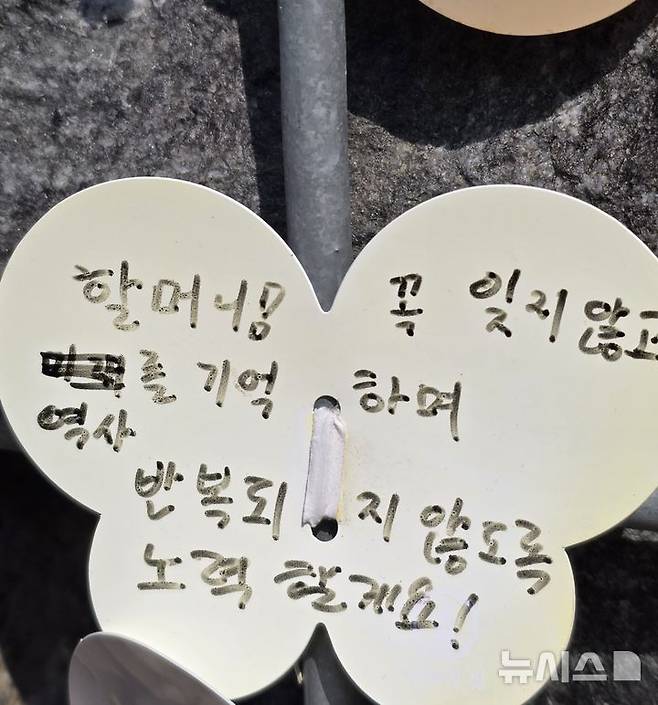 할머니! 꼭 잊지않고
를 기억 하며
역사
반복되지 않도록
노력 할게요!
뉴시스